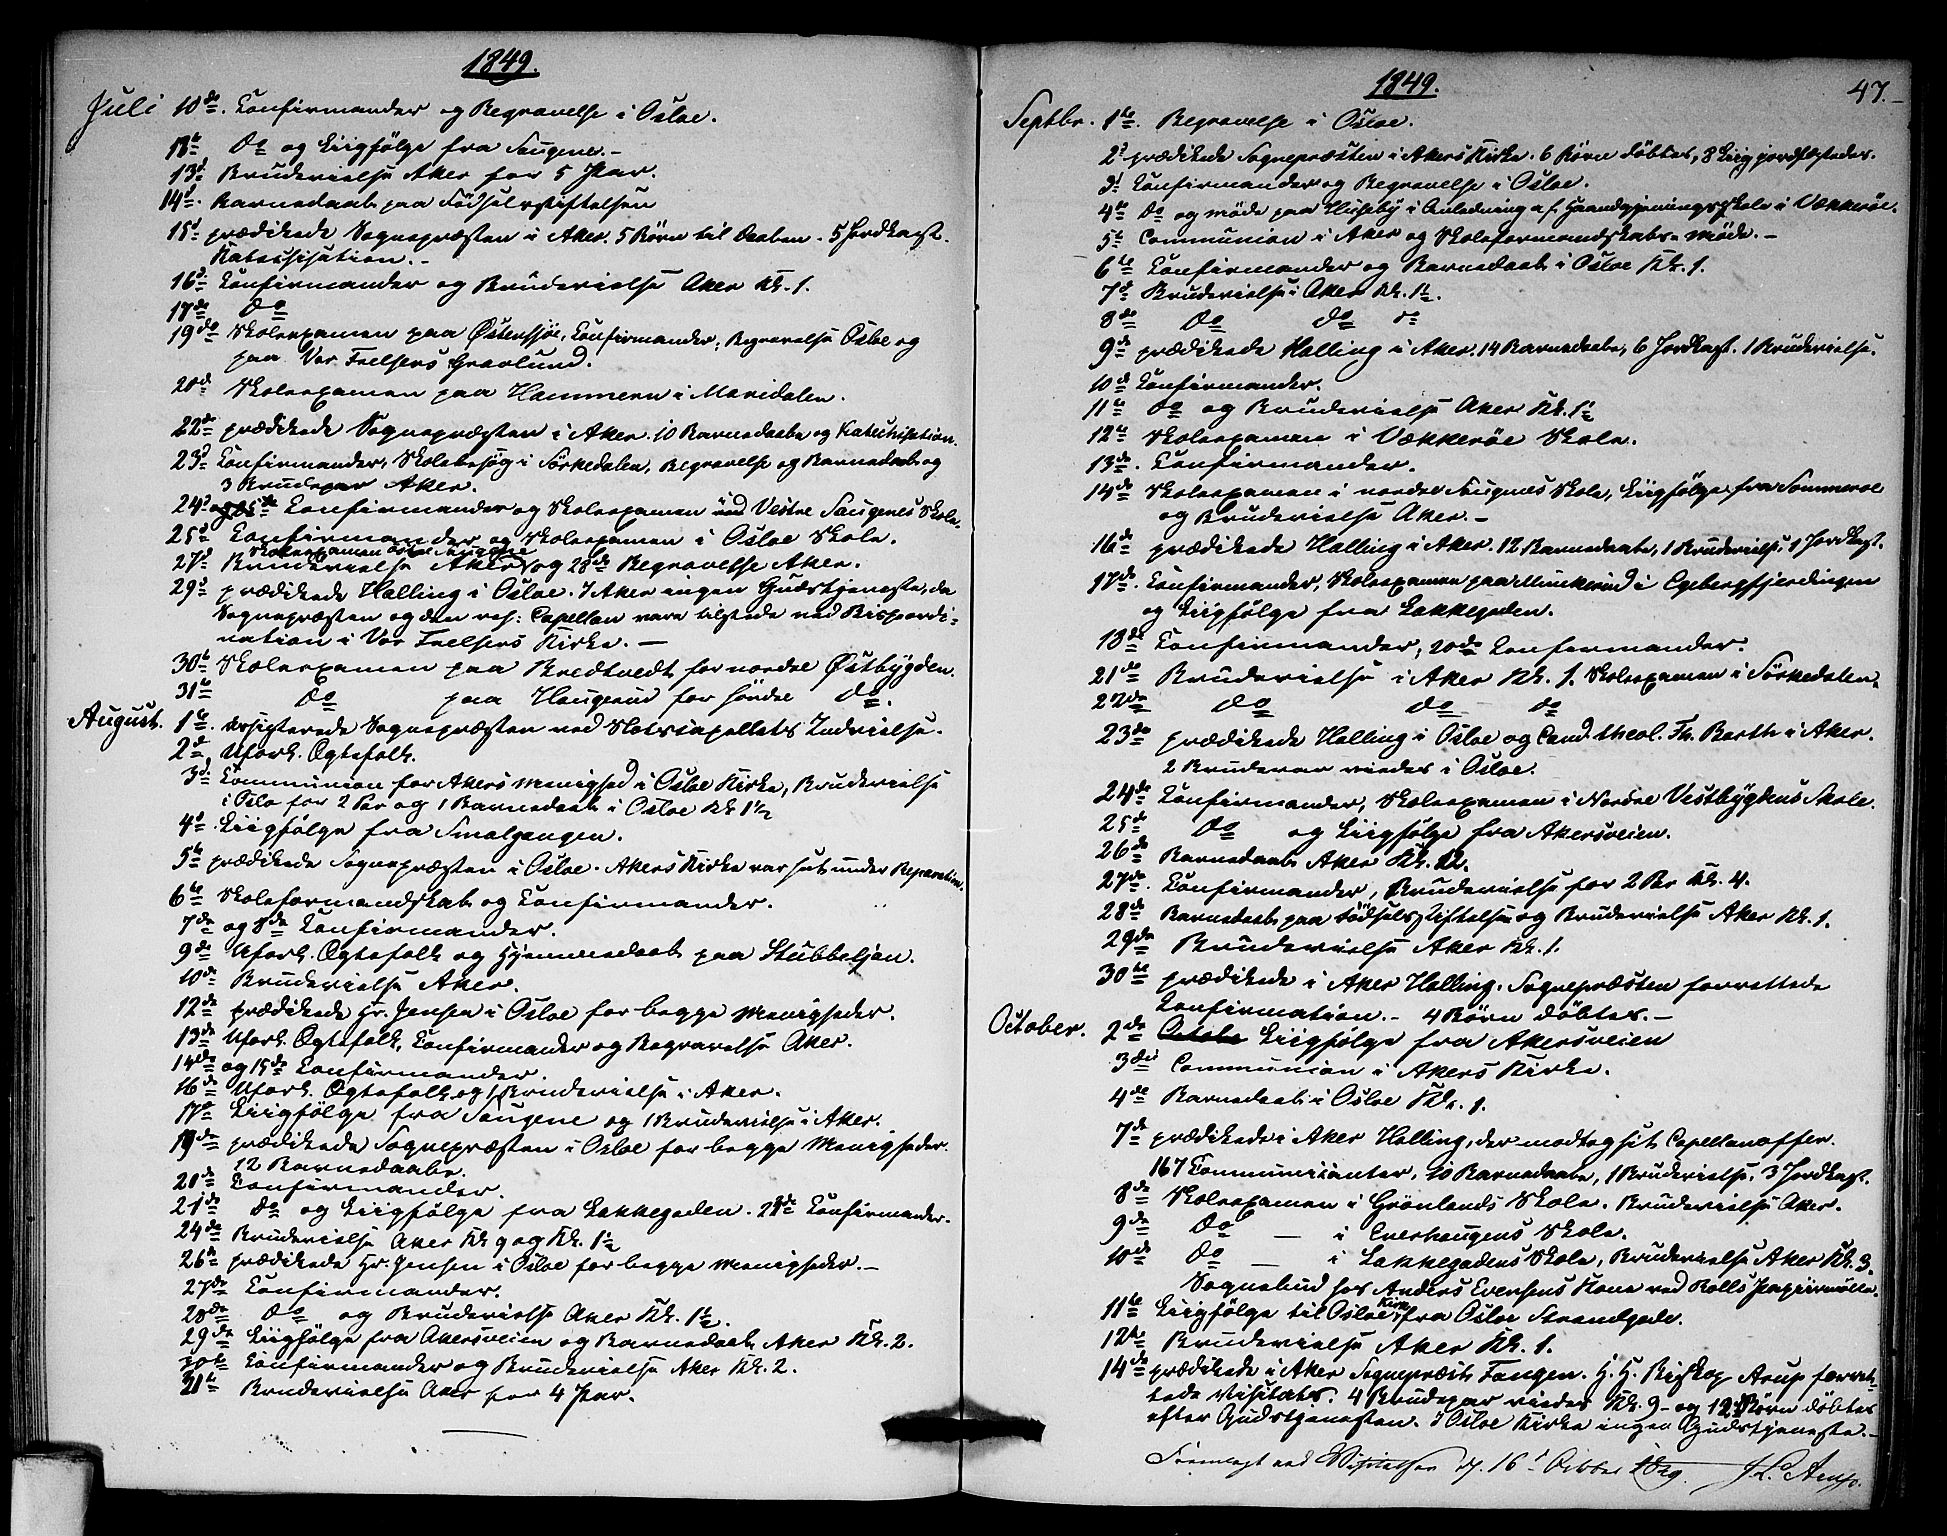 1849.
Juli 10de. Confirmander og Begravelse i Osloe.
18te Do og Liigfölge fra Saugene. –
13d Brudevielse Aker for 5 Par.
14d. Barnedaab paa Födselsstiftelsen
15d prædikede Sognepræsten i Aker. 5 Börn til Daaben. 5 Jordkast.
Katechisation. –
16d Confirmander og Brudevielse Aker Kl. 1.
17de Do
19de Skoleexamen paa Östensjöe, Confirmander, Begravelse Osloe og
paa Vor Frelsers Gravlund.
20de Skoleexamen paa Hammeren i Maridalen.
22de prædikede Sognepræsten i Aker. 10 Barnedaabe og Katechisation.
23d Confirmander, Skolebesög i Sörkedalen, Begravelse og Barnedaab og
3 Brudepar Aker.
24d Confirmander og Skoleexamen ved Vestre Saugenes Skole.
25d Confirmander og Skoleexamen i Osloe Skole.
Skoleexamen östre Saugene
27d Brudevielse Aker og 28de Begravelse Aker.
29d prædikede Halling i Osloe. I Aker ingen Gudstjeneste, da
Sognepræsten og den res: Capellan vare tilstede ved Bispeordi-
nation i Vor Frelsers Kirke. –
30te Skoleexamen paa Bredtvedt for nordre Östbygden.
31te Do paa Haugerud for söndre Do.
August. 1te. assisterede Sognepræsten ved Slotscapellets Indvielse.
2d Uforl. Ægtefolk.
3de Communion for Akers Menighed i Osloe Kirke, Brudevielse
i Oslo for 2 Par og 1 Barnedaab i Osloe Kl. 1½
4d Liigfölge fra Smalgangen.
5te prædikede Sognepræsten i Osloe. Akers Kirke var sat under Reparation.
6te Skoleformandskab og Confirmander.
7de og 8de Confirmander.
9de Uforl. Ægtefolk og Hjemmedaab paa Stubbeljan.
10de Brudevielse Aker.
12de prædikede Hr. Jensen i Osloe for begge Menigheder.
13de Uforl. Ægtefolk, Confirmander og Begravelse Aker.
14de og 15de Confirmander.
16de Uforl. Ægtefolk og 1 Brudevielse i Aker.
17de Liigfölge fra Saugene og 1 Brudevielse i Aker.
19de prædikede Sognepræsten i Osloe for begge Menigheder.
12 Barnedaabe.
20de Confirmander.
21de Do og Liigfölge fra Lakkegaden. 23de Confirmander.
24de Brudevielse Aker Kl. 9 og Kl. 1½
26de prædikede Hr. Jensen i Osloe for begge Menigheder. –
27de Confirmander.
28de Do og Brudevielse Aker Kl. 1½.
29de Liigfölge fra Akersveien og Barnedaab Aker Kl. 2.
30te Confirmander og Brudevielse Aker Kl. 2.
31te Brudevielse Aker for 4 Par.
1849.
47. –
Septbr. 1te. Begravelse i Osloe.
2d prædikede Sognepræsten i Akers Kirke. 6 Börn döbtes, 3 Liig jordfæstedes.
3d Confirmander og Begravelse i Osloe.
4de Do og möde paa Huseby i Anledning af Haandgjerningsskole i Vækkeröe.
5te Communion i Aker og Skoleformandskabs-Möde. –
6te Confirmander og Barnedaab i Osloe Kl. 1.
7d Brudevielse i Aker Kl. 1½.
8de Do Do Do
9de prædikede Halling i Aker. 14 Barnedaabe, 6 Jordkast. 1 Brudevielse.
10de Confirmander.
11te Do og Brudevielse Aker Kl. 1½
12te Skoleexamen i Vækkeröe Skole.
13de. Confirmander.
14de Skoleexamen i nordre Saugenes Skole, Liigfölge fra Sommeroe
og Brudevielse Aker. –
16de prædikede Halling i Aker. 12 Barnedaabe, 1 Brudevielse, 1 Jordkast.
17de Confirmander, Skoleexamen paa Munkerud i Egebergfjerdingen
og Liigfölge fra Lakkegaden.
18de Confirmander, 20de Confirmander.
21de Brudevielse i Aker Kl. 1. Skoleexamen i Sörkedalen.
22de Do Do Do
23de prædikede Halling i Osloe og Cand. theol. Fr. Barth i Aker.
2 Brudepar viedes i Osloe.
24de Confirmander, Skoleexamen i Nordre Vestbygdens Skole.
25de Do og Liigfölge fra Akersveien.
26de Barnedaab Aker Kl. 12.
27de. Confirmander, Brudevielse for 2 Par Kl. 4.
28de Barnedaab paa Födselsstiftelsen og Brudevielse Aker Kl. 1.
29de Brudevielse Aker Kl. 1.
30te prædikede i Aker Halling. Sognepræsten forrettede
Confirmation. – 4 Börn döbtes. –
October. 2de Liigfölge fra Akersveien
3die Communion i Akers Kirke.
4de Barnedaab i Osloe Kl. 1.
7de prædikede i Aker Halling, der modtog sit Capellanoffer.
167 Communicanter, 10 Barnedaabe, 1 Brudevielse. 3 Jordkast.
8de Skoleexamen i Grönlands Skole. Brudevielse Aker.
9de Do — i Enerhaugens Skole.
10de Do — i Lakkegadens Skole, Brudevielse Aker Kl. 3.
Sognebud hos Anders Evensens Kone ved Bölls Papiirmölle.
11te Liigfölge til Osloe Kirke fra Osloe Strandgade.
12te Brudevielse Aker Kl. 1.
14de prædikede i Aker Sognepræst Fangen. H. H. Biskop Arup forret-
tede Visitats. 4 Brudepar viedes Kl. 9 – og 12 Börn döbtes
efter Gudstjenesten. I Osloe Kirke ingen Gudstjeneste. –
Fremlagt ved Visitatsen d. 16d October 1849. J. L. Arup.